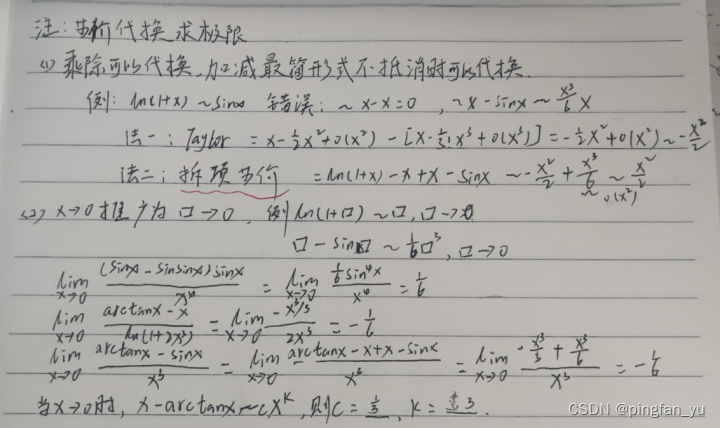 注：等价代换求极限
(1) 乘除可以代换，加减最简形式不抵消时可以代换.
例：ln(1+x) ~ sinx 错误：~ x-x=0 , ~x-sinx ~ x³/6 X
法一：Taylor = x-½x²+o(x²) - [x-1/3! x³+o(x³)] = -½x²+o(x²) ~ -x²/2
法二：拆项等价 = ln(1+x)-x+x-sinx ~ -x²/2 + x³/6 ~ x²/2
~ o(x²)
(2) x→0推广为□→0, 例ln(1+□) ~ □, □→0
□-sin□ ~ 1/6□³, □→0
lim x→0 (sinx-sinsinx)sinx / x⁴ = lim x→0 1/6 sin⁴x / x⁴ = 1/6
lim x→0 arctanx-x / ln(1+2x³) = lim x→0 -x³/3 / 2x³ = -1/6
lim x→0 arctanx-sinx / x³ = lim x→0 arctanx-x+x-sinx / x³ = lim x→0 -x³/3 + x³/6 / x³ = -1/6
当x→0时, x-arctanx~cx^k, 则c= 1/3, k= 3.
CSDN @pingfan_yu